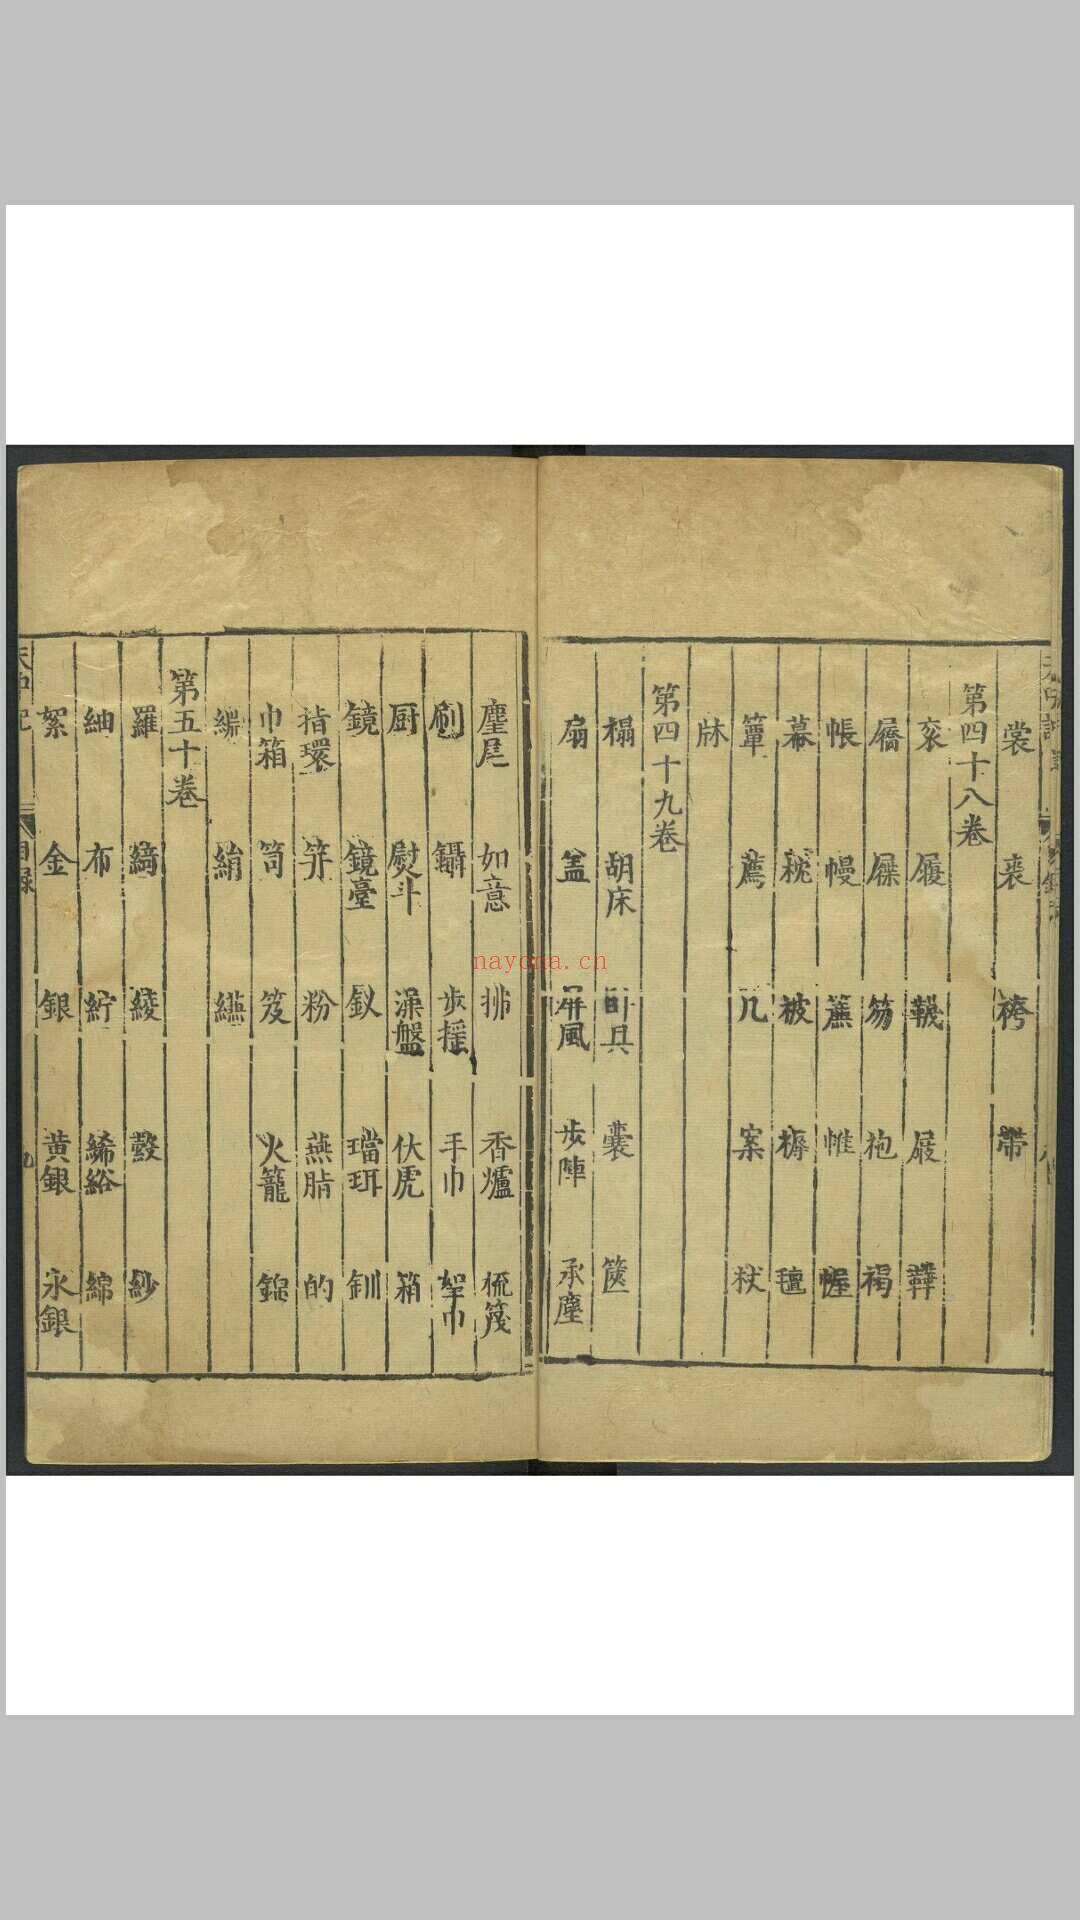 裳 裘 袴 帶
第四十八卷
衮 履 韈 屐 鞾
屩 屧 笏 袍 褐
帳 幔 簾 帷 幄
幕 枕 被 褥 氊
簟 薦 几 案 杖
牀
第四十九卷
榻 胡床 具 囊 篋
扇 盖 屏風 步障 承塵
麈尾 如意 拂 香爐 梳篦
刷 鑷 步摇 手巾
厨 熨斗 澡盤 伏虎 箱
鏡 鏡臺 釵 璫珥 釧
指環 笄 粉 燕脂 的
巾箱 笥 笈 火籠
第五十卷
絹 縑
羅 綺 綾 縠 紗
紬 布 紵 絺綌 綿
絮 金 銀 黄銀 永銀
天中記 目録 九
nayona.cn